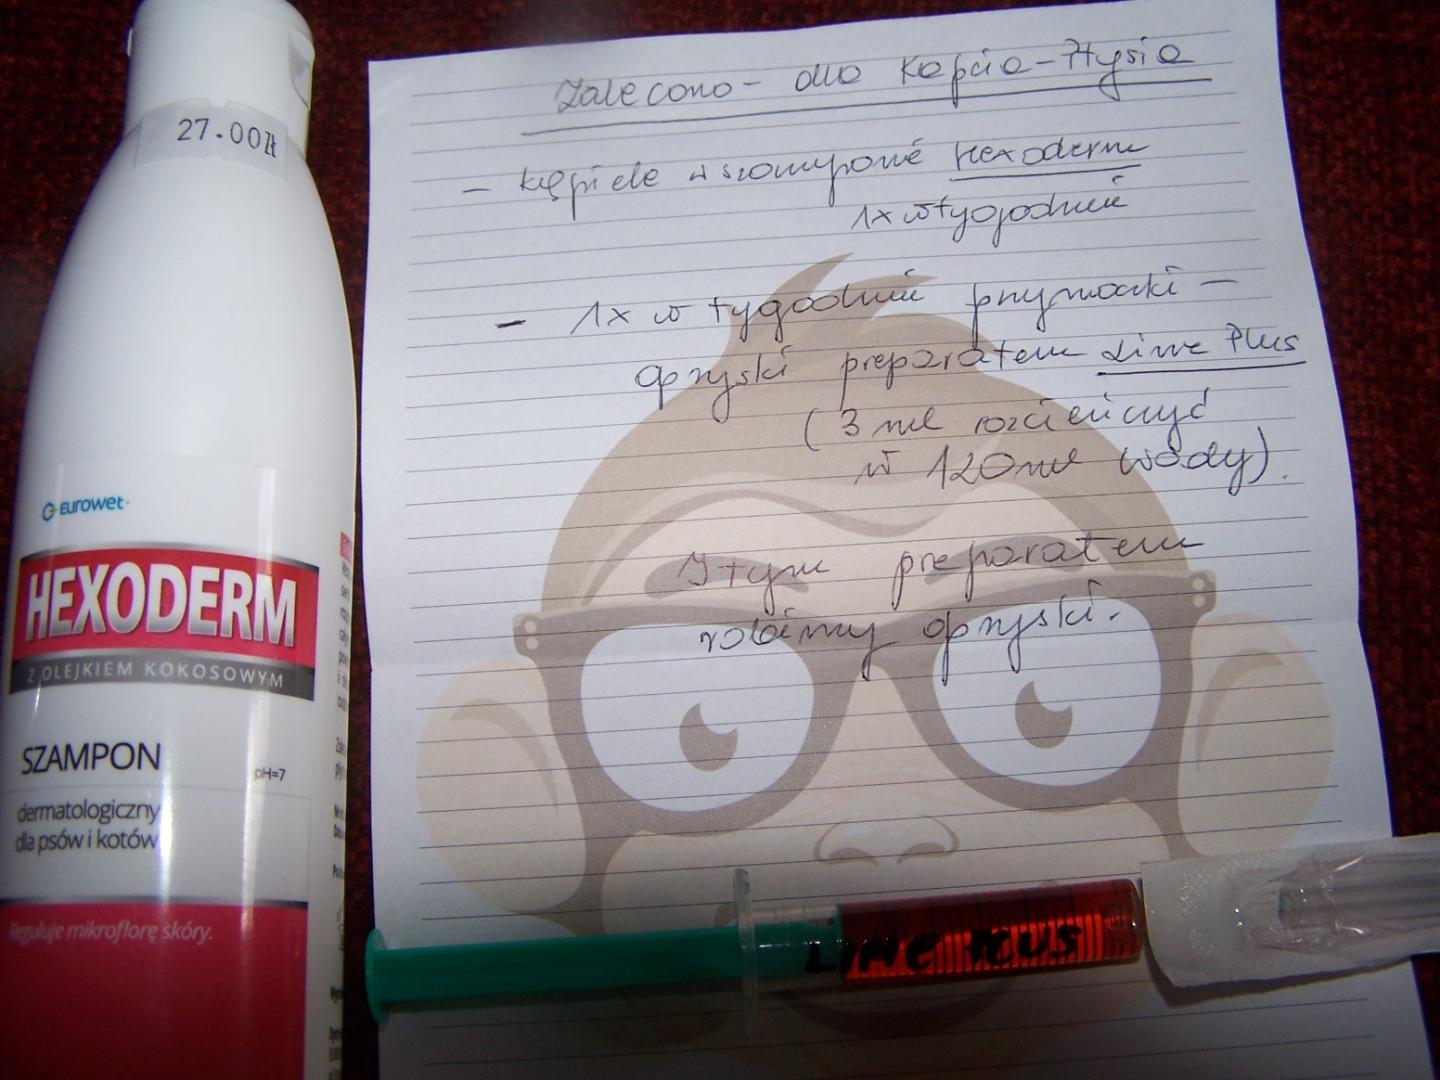 27.00zł
eurowet
HEXODERM
Z OLEJKIEM KOKOSOWYM
SZAMPON
pH=7
dermatologiczny
dla psów i kotów
Reguluje mikroflorę skóry.
Zalecono - dla Kapcia-Łysia
- kąpiele w szamponie Hexoderm
1x w tygodniu
- 1x w tygodniu przymoczki -
opryski preparatem Lime Plus
(3 ml rozcieńczyć
w 120 ml wody).
I tym preparatem
robimy opryski.
LIME PLUS